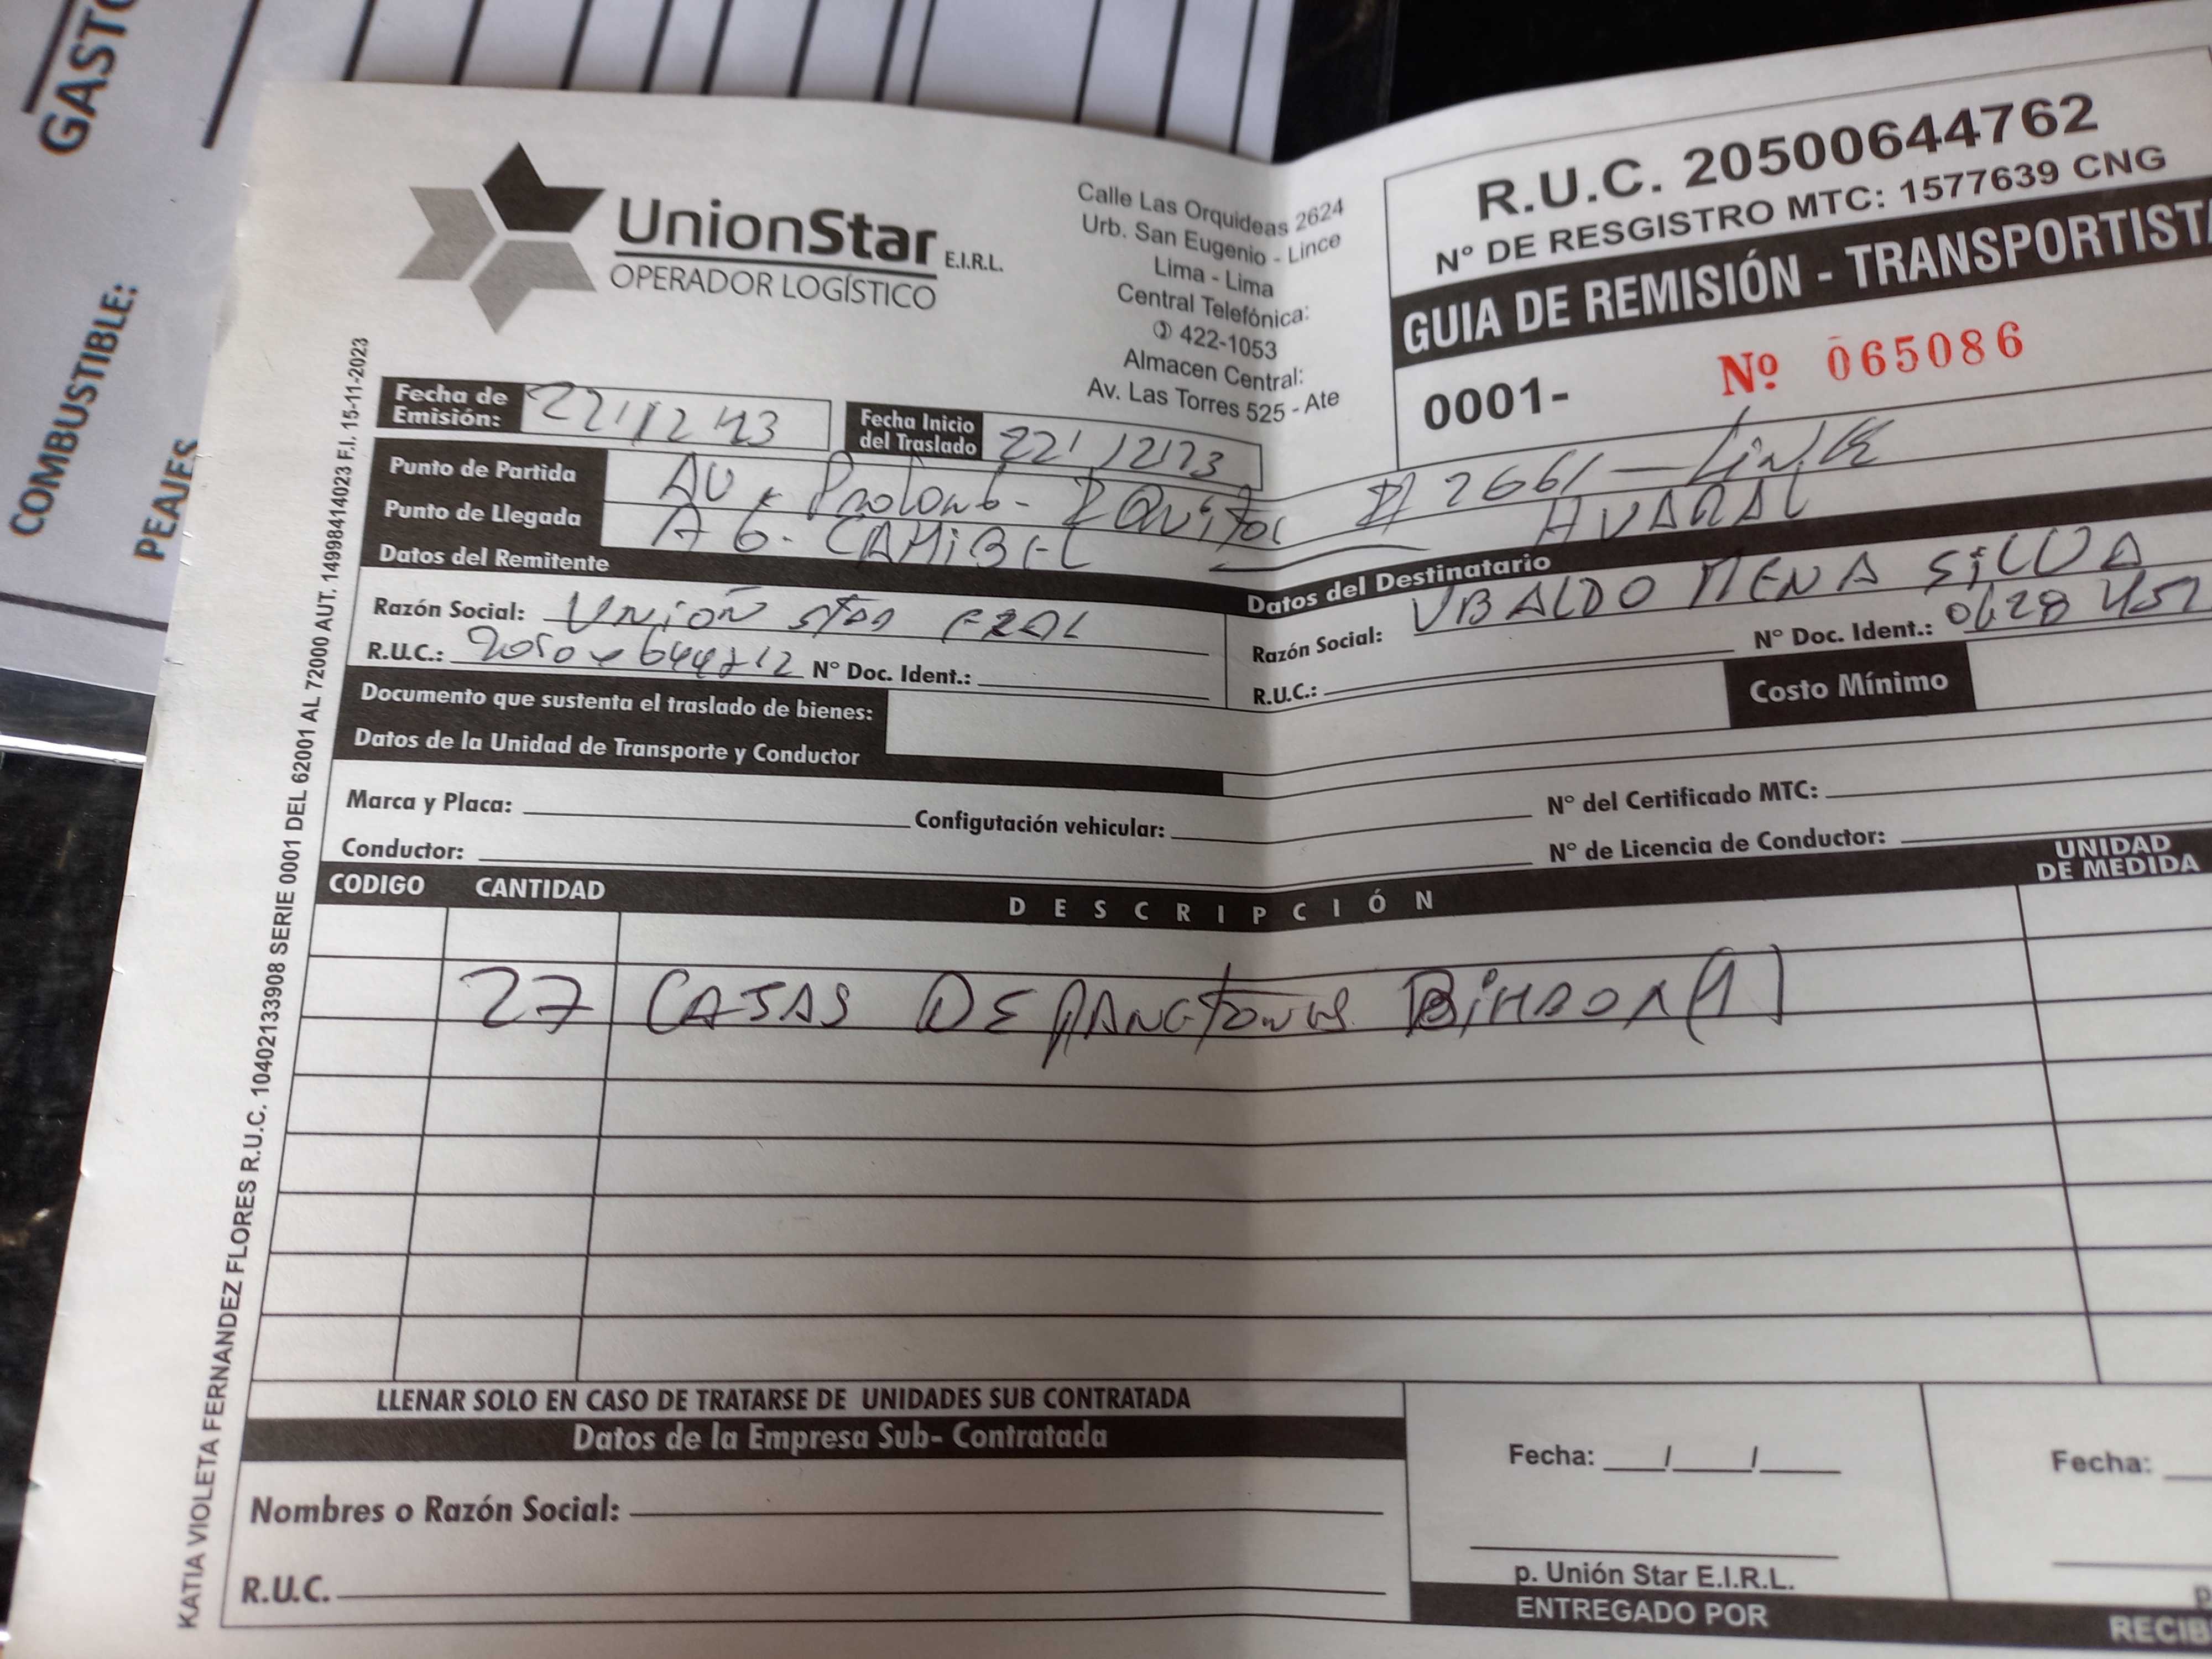 GASTO
COMBUSTIBLE:
PEAJES
UnionStar E.I.R.L.
OPERADOR LOGÍSTICO
Calle Las Orquideas 2624
Urb. San Eugenio - Lince
Lima - Lima
Central Telefónica:
422-1053
Almacen Central:
Av. Las Torres 525 - Ate
R.U.C. 20500644762
N° DE RESGISTRO MTC: 1577639 CNG
GUIA DE REMISIÓN - TRANSPORTISTA
0001- Nº 065086
Fecha de Emisión: 22/12/23 Fecha Inicio del Traslado 22/12/23
Punto de Partida AV. Prolong. # 2661 -
Punto de Llegada AG. CAMIBEL HUARAL
Datos del Remitente Datos del Destinatario
Razón Social: Unión Star Razón Social: UBALDO MENA SILVA
R.U.C.: N° Doc. Ident.: R.U.C.: N° Doc. Ident.:
Documento que sustenta el traslado de bienes: Costo Mínimo
Datos de la Unidad de Transporte y Conductor
Marca y Placa: Configutación vehicular: N° del Certificado MTC:
Conductor: N° de Licencia de Conductor:
CODIGO CANTIDAD DESCRIPCIÓN UNIDAD DE MEDIDA
27 CAJAS DE PANETONES
LLENAR SOLO EN CASO DE TRATARSE DE UNIDADES SUB CONTRATADA
Datos de la Empresa Sub- Contratada
Nombres o Razón Social:
R.U.C.
Fecha: / / Fecha:
p. Unión Star E.I.R.L.
ENTREGADO POR RECIB
KATIA VIOLETA FERNANDEZ FLORES R.U.C. 10402133908 SERIE 0001 DEL 62001 AL 72000 AUT. 14998414023 F.I. 15-11-2023